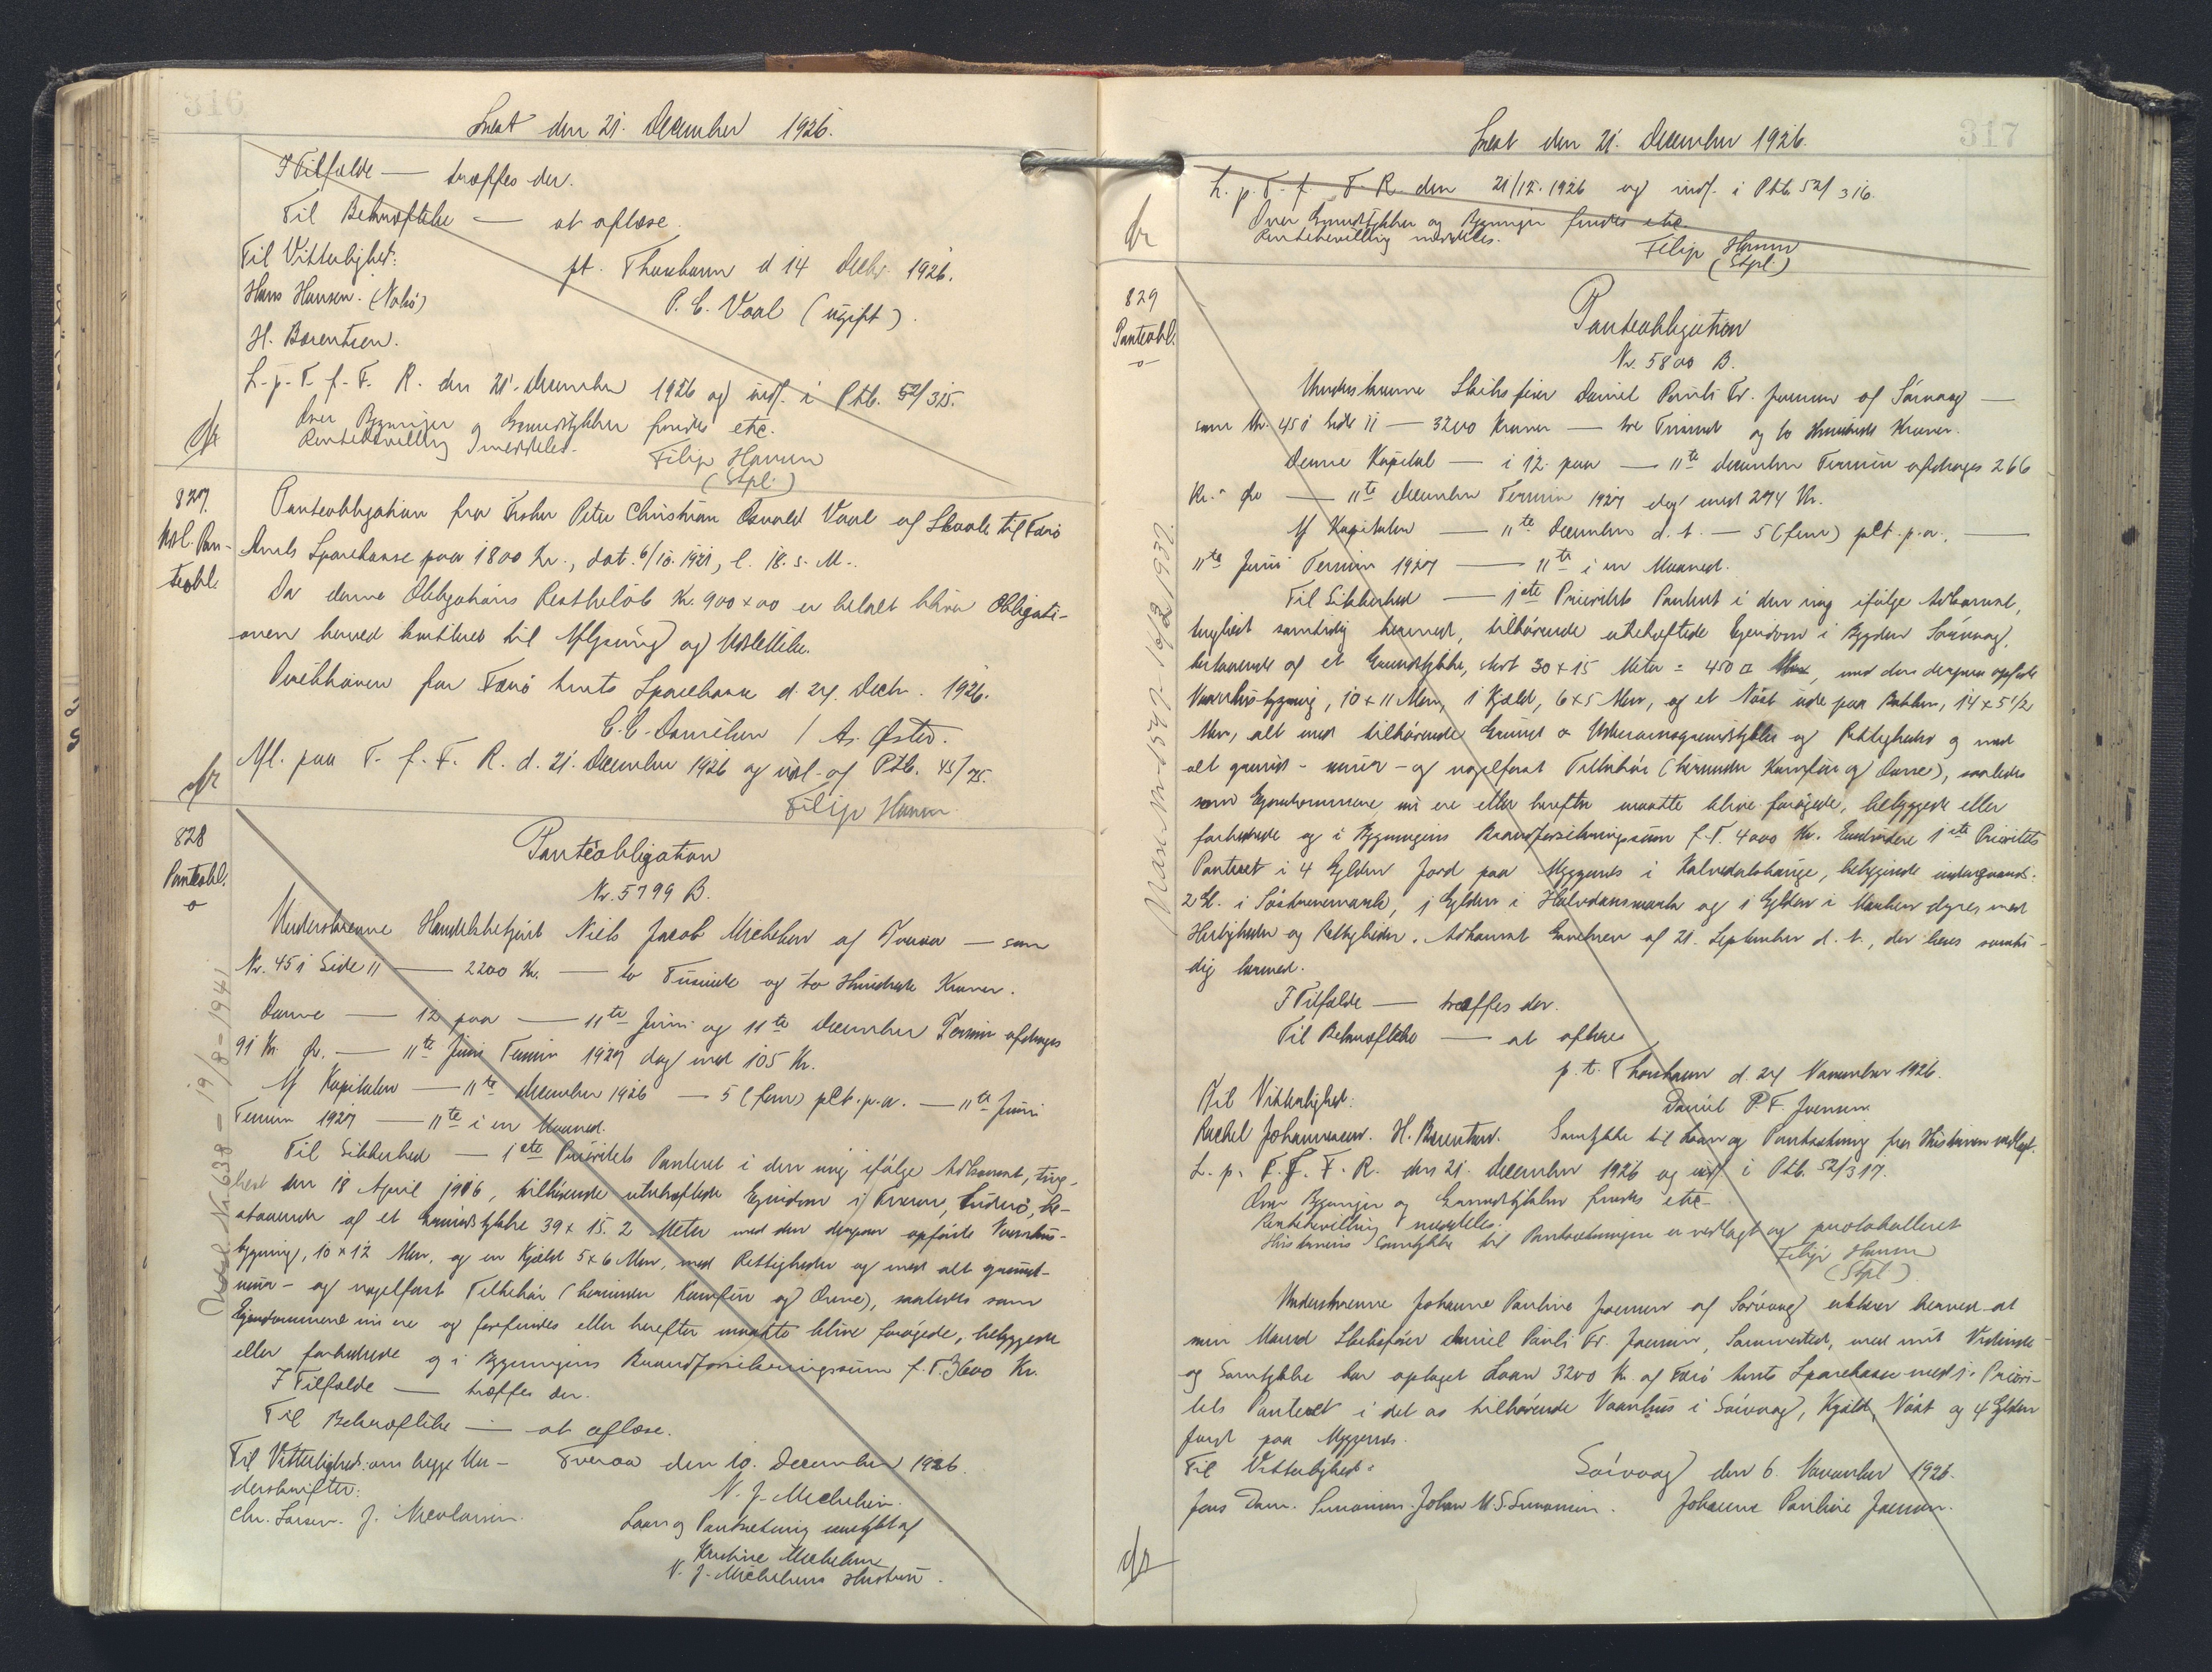 316
Læst den 21. December 1926.
I Tilfælde — træffes der.
Til Bekræftelse — at aflæse.
Til Vitterlighed:
pt. Thorshavn d 14 Decbr. 1926.
Hans Hansen. (Nolsö)
P. C. Vaal (ugift).
H. Berentsen.
L. p. T. f. F. R. den 21. December 1926 og indf. i Ptb. 52/315.
Over Bygninger og Grundstykker findes etc.
Rentebevilling meddeles.
Filip Hansen
(Stpl.)
827.
Udsl. Pan-
teobl.
Panteobligation fra Fisker Peter Christian Osvald Vaal af Skaale til Færö
Amts Sparekasse paa 1800 Kr., dat. 6/10. 1921, l. 18. s. M.
Da denne Obligations Restbeløb Kr. 900 x 00 er betalt bliver Obligati-
onen herved kvitteret til Aflysning og Udslettelse.
Direktionen for Færö Amts Sparekasse d. 24. Decbr. 1926.
C. C. Danielsen / A. Østerø.
Afl. paa T. f. F. R. d. 21. December 1926 og udsl. af Ptb. 45/75.
Filip Hansen
828
Panteobl.
Panteobligation
Nr. 5799 B.
Underskrevne Handelsbestyrer Niels Jacob Michelsen af Tveraa — som
Nr. 451 Side 11 — 2200 Kr. — to Tusinde og to Hundrede Kroner.
Denne — 12 paa — 11te Juni og 11te December Termin afdrages
91 Kr. Ør. — 11te Juni Termin 1927 dog med 105 Kr.
Af Kapitalen — 11te December 1926 — 5 (fem) pCt. p. a. — 11te Juni
Termin 1927 — 11te i en Maaned.
Til Sikkerhed — 1ste Prioritets Panteret i den mig ifølge Adkomst, ting-
læst den 18 April 1906, tilhørende ubehæftede Ejendom i Tveraa, Suderö, be-
staaende af et Grundstykke 39 x 15.2 Meter med den derpaa opførte Vaanhus-
bygning, 10 x 12 Alen, og en Kjæld 5 x 6 Alen, med Rettigheder og med alt grund-
muur- og nagelfast Tilbehør (herunder Komfur og Ovne), saaledes som
Ejendommene nu ere og forfindes eller herefter maatte blive forøgede, bebyggede
eller forbedrede og i Bygningens Brandforsikringssum f. T. 3600 Kr.
I Tilfælde — træffes der.
Til Bekræftelse — at aflæse.
Til Vitterlighed om begge Un-
Tveraa den 10. December 1926.
derskrifter:
N. J. Michelsen.
Chr. Larsen. J. Nicolaisen.
Laan og Pantsætning samtykket af
Kristine Michelsen
N. J. Michelsens Hustru.
Udsl. Nr. 638 - 19/8 - 1941
317
Læst den 21. December 1926.
L. p. T. f. F. R. den 21/12. 1926 og indf. i Ptb. 52/316.
Over Grundstykker og Bygninger findes etc.
Rentebevilling meddeles.
Filip Hansen
(Stpl.)
829
Panteobl.
Panteobligation
Nr. 5800 B.
Underskrevne Skibsfører Daniel Pauli Fr. Joensen af Sörvaag —
som Nr. 451 Side 11 — 3200 Kroner — tre Tusinde og to Hundrede Kroner.
Denne Kapital — i 12 paa — 11te December Termin afdrages 266
Kr. " Øre — 11te December Termin 1927 dog med 274 Kr.
Af Kapitalen — 11te December d. A. — 5 (fem) pCt. p. a. —
11te Juni Termin 1927 — 11te i en Maaned.
Til Sikkerhed — 1ste Prioritets Panteret i den mig ifølge Adkomst,
tinglæst samtidig hermed, tilhørende ubehæftede Ejendom i Bygden Sörvaag,
bestaaende af et Grundstykke, stort 30 x 15 Meter = 450 □ , med den derpaa opførte
Vaanhusbygning, 10 x 11 Alen, 1 Kjæld, 6 x 5 Alen, og et Nöst ude paa Bakken, 14 x 5 1/2
Alen, alt med tilhørende Grund o Udenomsgrundstykker og Rettigheder og med
alt grund- muur- og nagelfast Tilbehør (herunder Komfur og Ovne), saaledes
som Ejendommene nu ere eller herefter maatte blive forøgede, bebyggede eller
forbedrede og i Bygningens Brandforsikringssum f. T. 4000 Kr. Endvidere 1ste Prioritets
Panteret i 4 Gylden Jord paa Myggenæs i Kalvedalshauge,
2 Gl. i , 1 Gylden i Halvdansmark og 1 Gylden i med
Herligheder og Rettigheder. Adkomst af 21. September d. A., der læses samti-
dig hermed.
I Tilfælde — træffes der.
Til Bekræftelse — at aflæse
p. t. Thorshavn d. 24 November 1926.
Til Vitterlighed:
Daniel P. F. Joensen
Rachel Johannesen. H. Berentsen. Samtykke til Laan og Pantsætning fra Hustruen vedlagt.
L. p. T. f. F. R. den 21. December 1926 og indf i Ptb. 52/317.
Over Bygninger og Grundstykker findes etc.
Rentebevilling meddeles.
Hustruens Samtykke til Pantsætningen er vedlagt og protokolleret
Filip Hansen
(Stpl)
Underskrevne Johanne Pauline Joensen af Sörvaag erklærer herved at
min Mand Skibsfører Daniel Pauli Fr. Joensen, Sammesteds, med mit Vidende
og Samtykke har optaget Laan 3200 Kr. af Færö Amts Sparekasse med 1. Priori-
tets Panteret i det os tilhørende Vaanhus i Sörvaag, Kjæld, Nöst og 4 Gylden
Jord paa Myggenæs.
Til Vitterlighed:
Sörvaag den 6. November 1926.
Jens Dam. Simonsen. Johan M. S. Simonsen. Johanne Pauline Joensen.